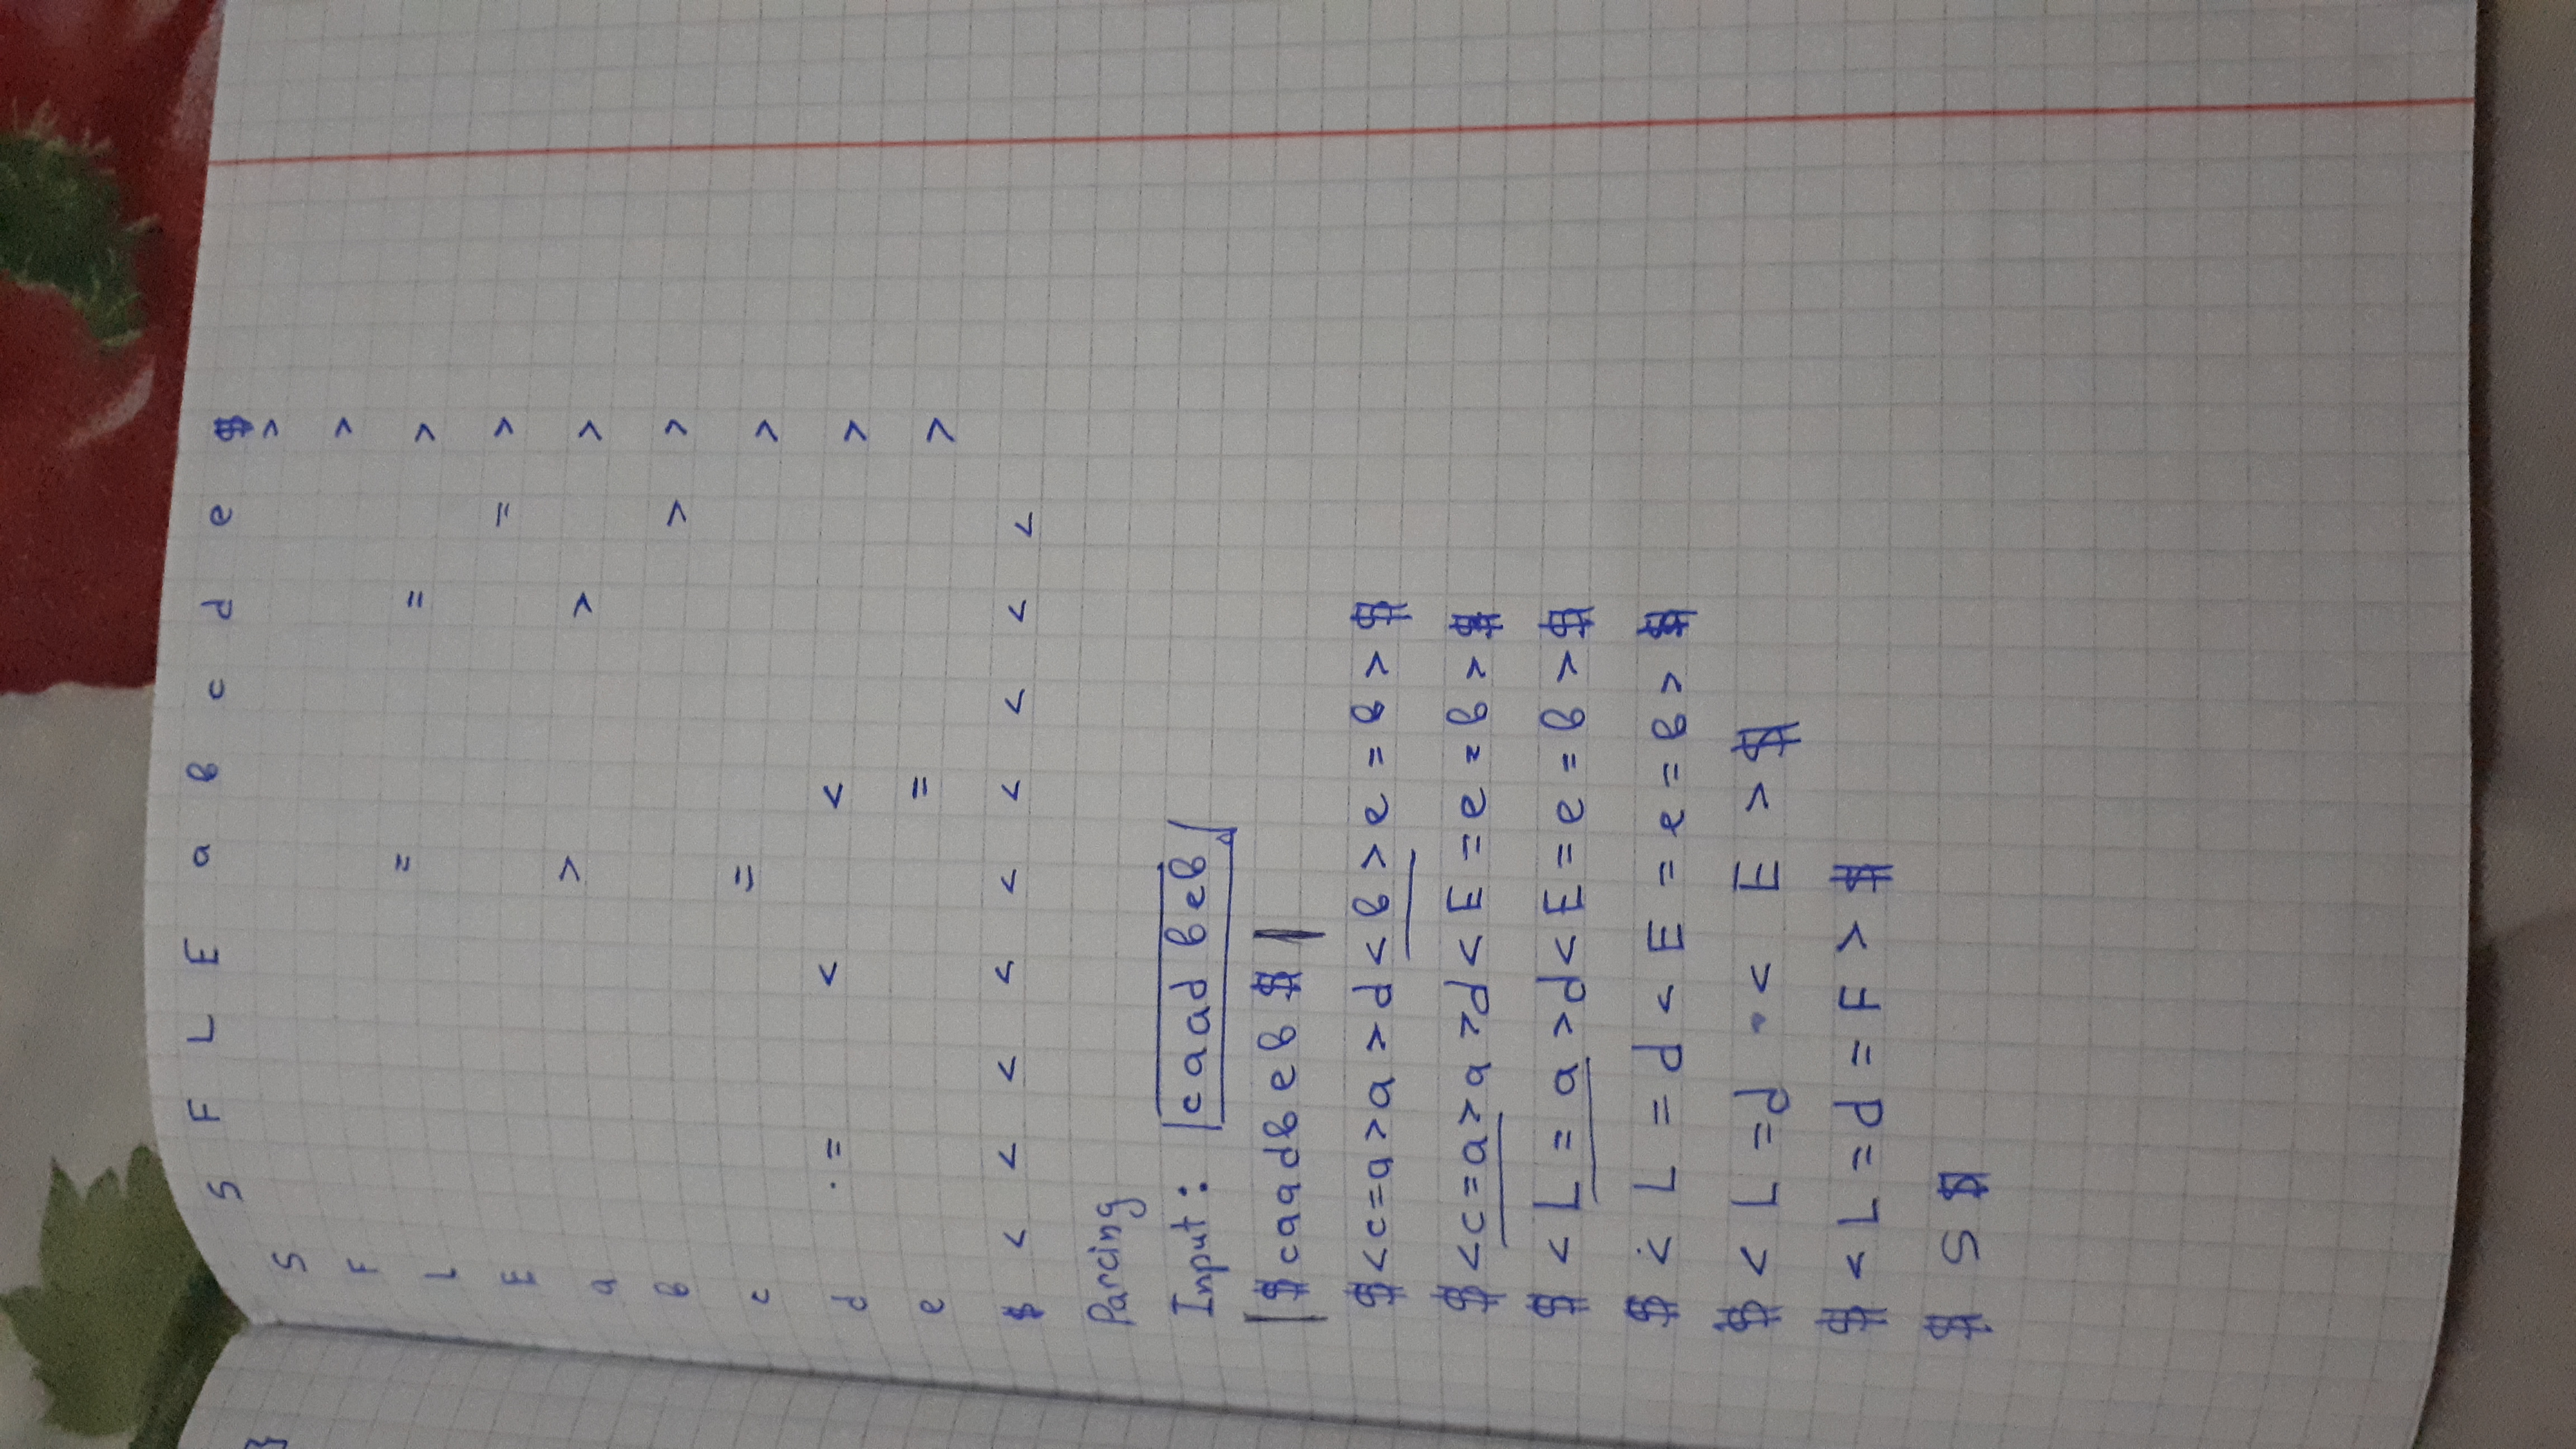 S F L E a b c d e $
S >
F >
L = = >
E = >
a > > >
b > >
c = >
d = < < >
e = >
$ < < < < < < < < <
Parcing
Input: caadbeb
$caadbeb$
$<c=a>a>d<b>e=b>$
$<c=a>a>d<E=e=b>$
$<L=a>d<E=e=b>$
$<L=d<E=e=b>$
$<L=d<E>$
$<L=d=F>$
$S$